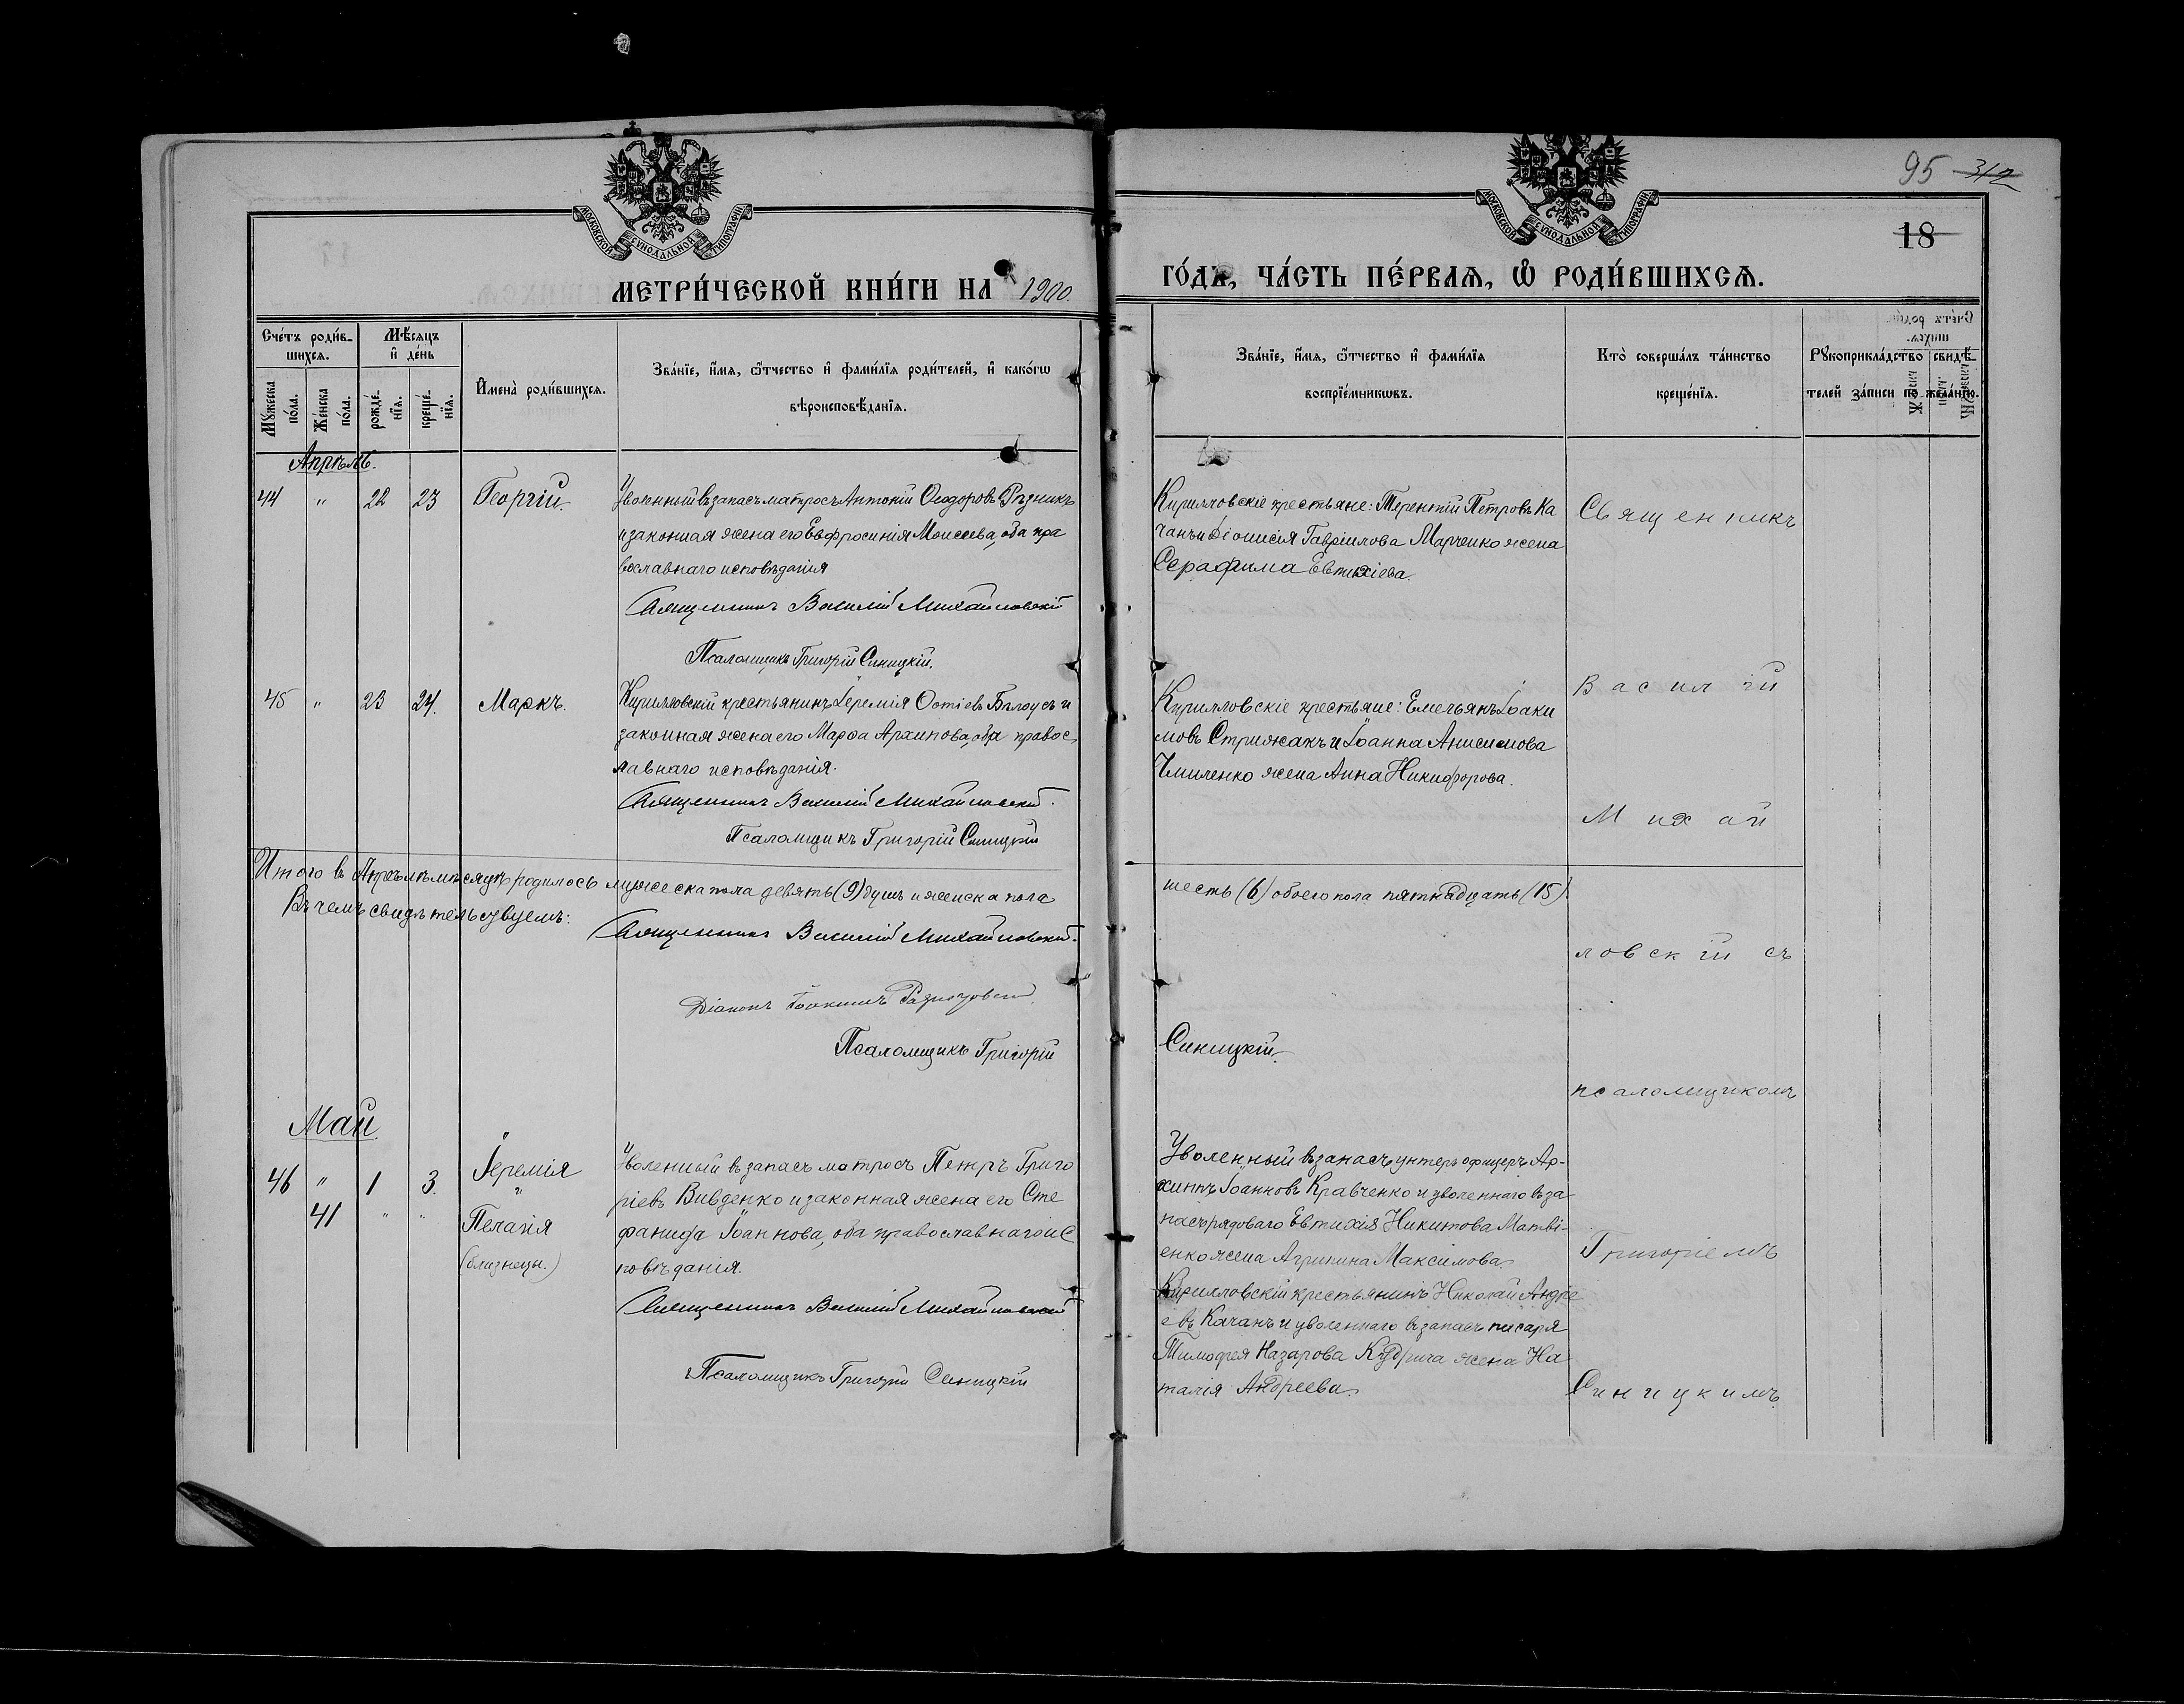 95 312
18
МОСКОВСКОЙ СѴНОДАЛЬНОЙ ТИПОГРАФІИ
МОСКОВСКОЙ СѴНОДАЛЬНОЙ ТИПОГРАФІИ
МЕТРИ́ЧЕСКОЙ КНИ́ГИ НА 1900.
ГО́ДЪ, ЧА́СТЬ ПЕ́РВАѦ, Ѡ҆ РОДИ́ВШИХСѦ.
Сче́тъ роди́в-
шихсѧ.
Мꙋ́жеска по́ла.
Же́нска по́ла.
Мѣ́сѧцъ
и҆ де́нь
рожде́-
нїѧ.
креще́-
нїѧ.
И҆мена̀ роди́вшихсѧ.
Зва́нїе, и҆́мѧ, ѻ҆́тчество и҆ фами́лїѧ роди́телей, и҆ како́гѡ
вѣроисповѣ́данїѧ.
Зва́нїе, и҆́мѧ, ѻ҆́тчество и҆ фами́лїѧ
воспрїе́мникѡвъ.
Кто̀ соверша́лъ та́инство
креще́нїѧ.
Рꙋкоприкла́дство свидѣ́-
телей за́писи по жела́нїю.
Апрѣль.
44 " 22 23 Георгій.
Уволенный въ запасъ матросъ Антоній Ѳеодоровъ Рѣзникъ
и законная жена его Евфросинія Моисеева, оба пра
вославнаго исповѣданія
Священникъ Василій Михайловскій
Псаломщикъ Григорій Синицкій.
Кирилловскіе крестьяне: Терентій Петровъ Ка
чанъ и Діонисія Гавріилова Марченко жена
Серафима Евтихіева.
45 " 23 24. Маркъ.
Кирилловскій крестьянинъ Іеремія Фотіевъ Бѣлоусъ и
законная жена его Марѳа Архипова, оба правос
лавнаго исповѣданія.
Священникъ Василій Михайловскій.
Псаломщикъ Григорій Синицкій
Кирилловскіе крестьяне: Емельянъ Іоаки
мовъ Стрижакъ и Іоанна Анисимова
Чмиленко жена Анна Никифорова.
Итого въ Апрѣлѣ мѣсяцѣ родилось мужеска пола девять (9) душъ и женска пола
шесть (6) обоего пола пятнадцать (15).
Въ чемъ свидѣтельствуемъ:
Священникъ Василій Михайловскій.
Діаконъ Іоакимъ
Псаломщикъ Григорій
Синицкій.
Май.
46 " 1 3. Іеремія
41 " " Пелагія
(близнецы.)
Уволенный въ запасъ матросъ Петръ Григо
ріевъ Вивденко и законная жена его Сте
фанида Іоаннова, оба православнаго ис
повѣданія.
Священникъ Василій Михайловскій
Псаломщикъ Григорій Синицкій
Уволенный въ запасъ унтеръ офицеръ Ар-
хиппъ Іоанновъ Кравченко и уволеннаго въ за
пасъ рядоваго Евтихія Никитова Матві-
енко жена Агрипина Максимова.
Кирилловскій крестьянинъ Николай Андре
евъ Качанъ и уволеннаго въ запасъ писаря
Тимофея Назарова Кудрича жена На
талія Андреева.
Священникъ
Василій
Михай
ловскій съ
псаломщикомъ
Григоріемъ
Синицкимъ.